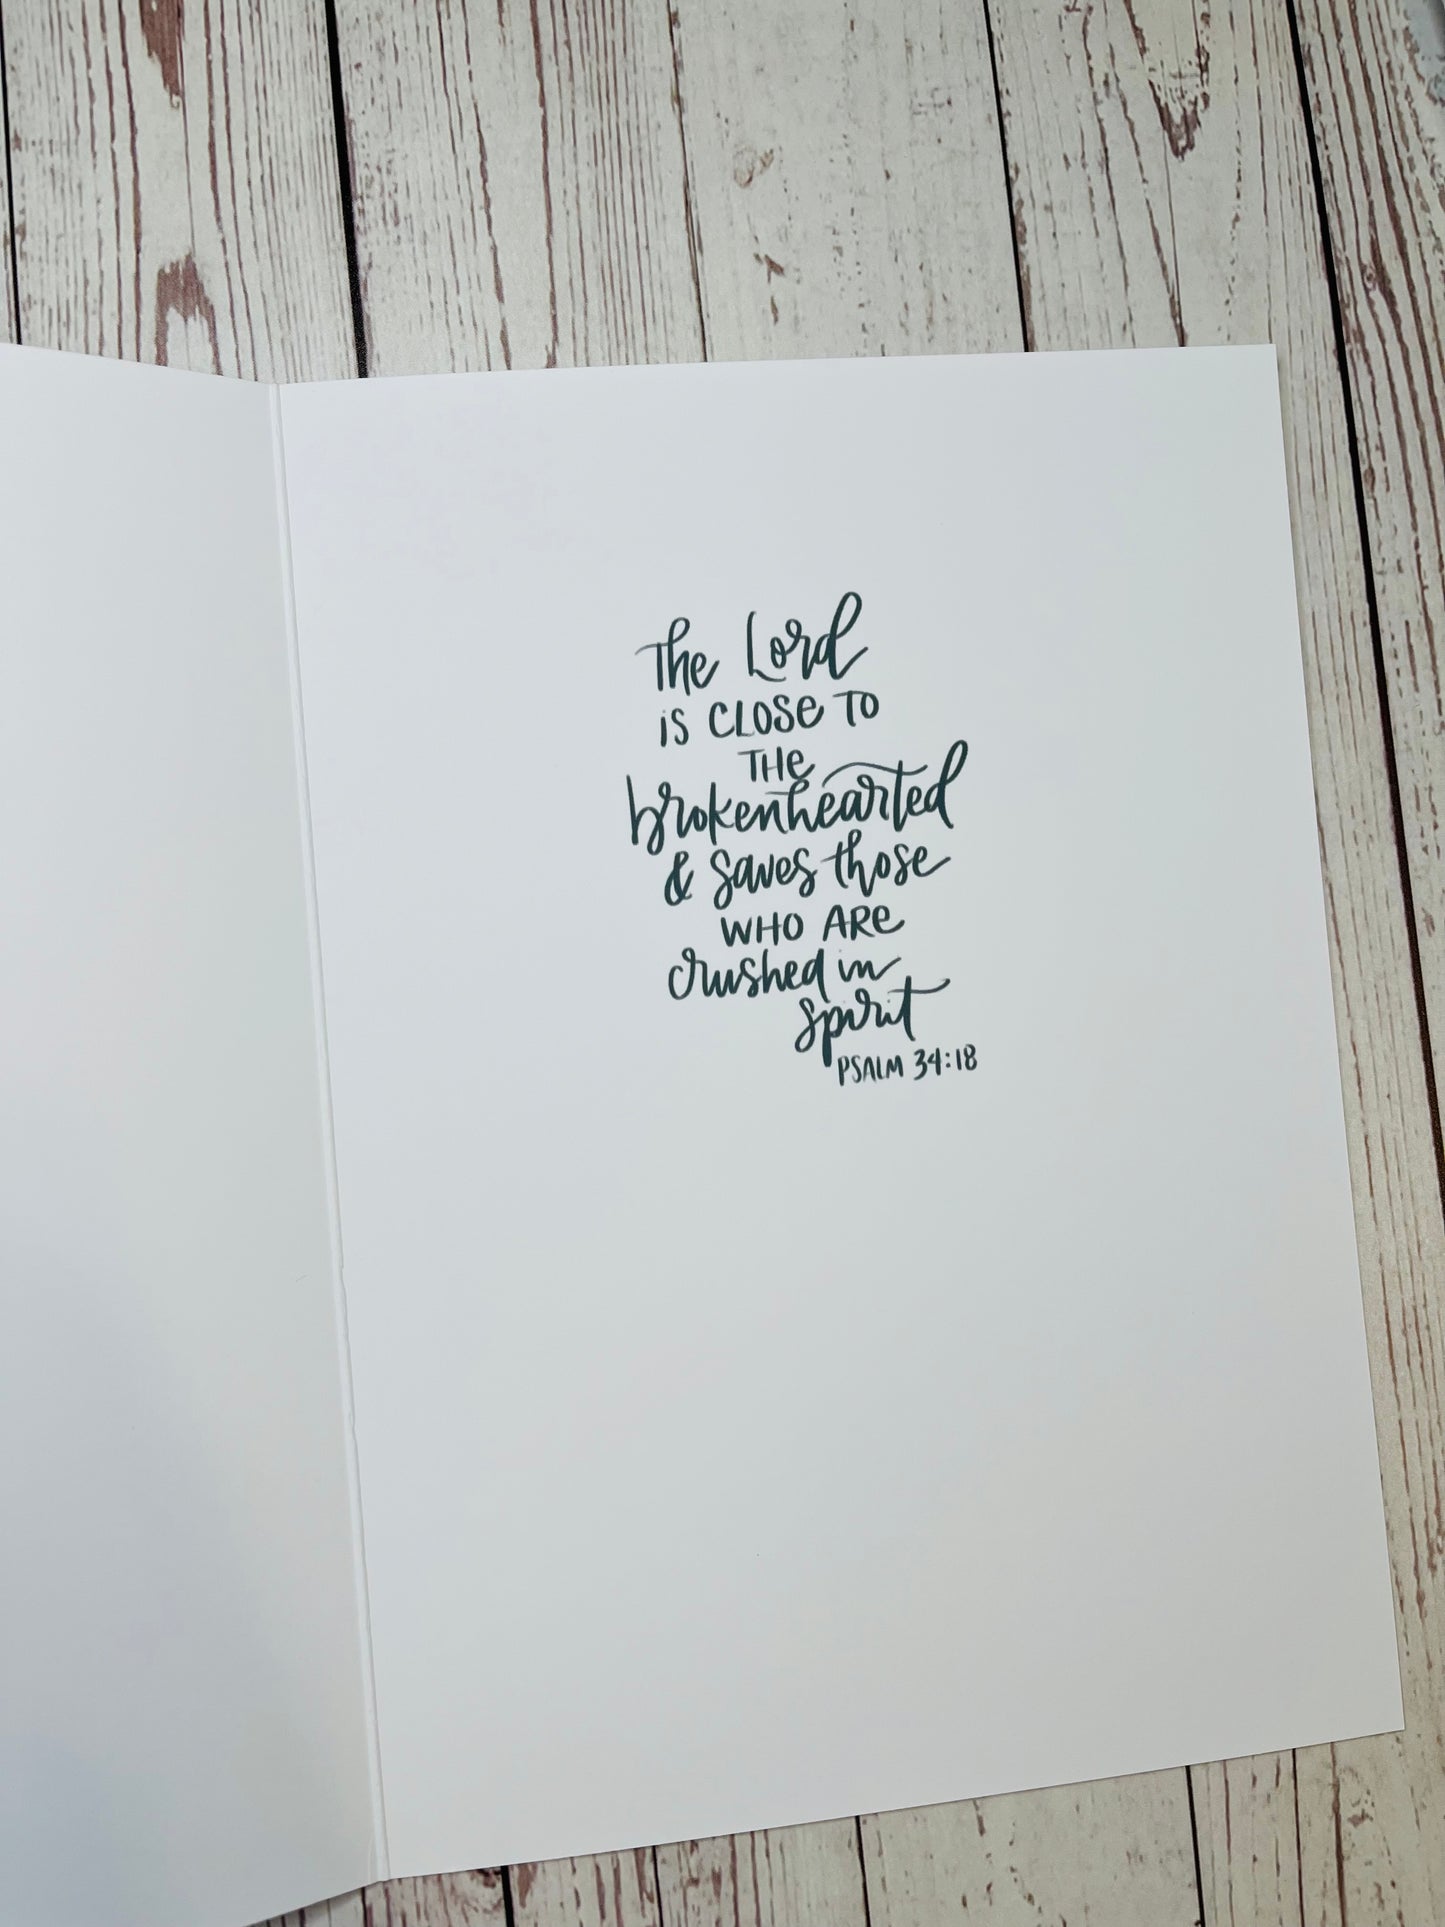 The Lord
is CLOSe TO
THe
brokenhearted
& saves those
WHO ARe
crushed in
spirit
PSALM 34:18